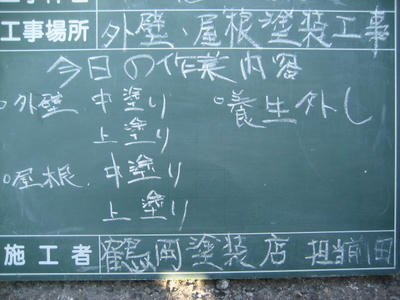 工事場所 外壁、屋根塗装工事
今日の作業内容
○外壁 中塗り ○養生外し
上塗り
○屋根 中塗り
上塗り
施工者 鶴岡塗装店 担当前田